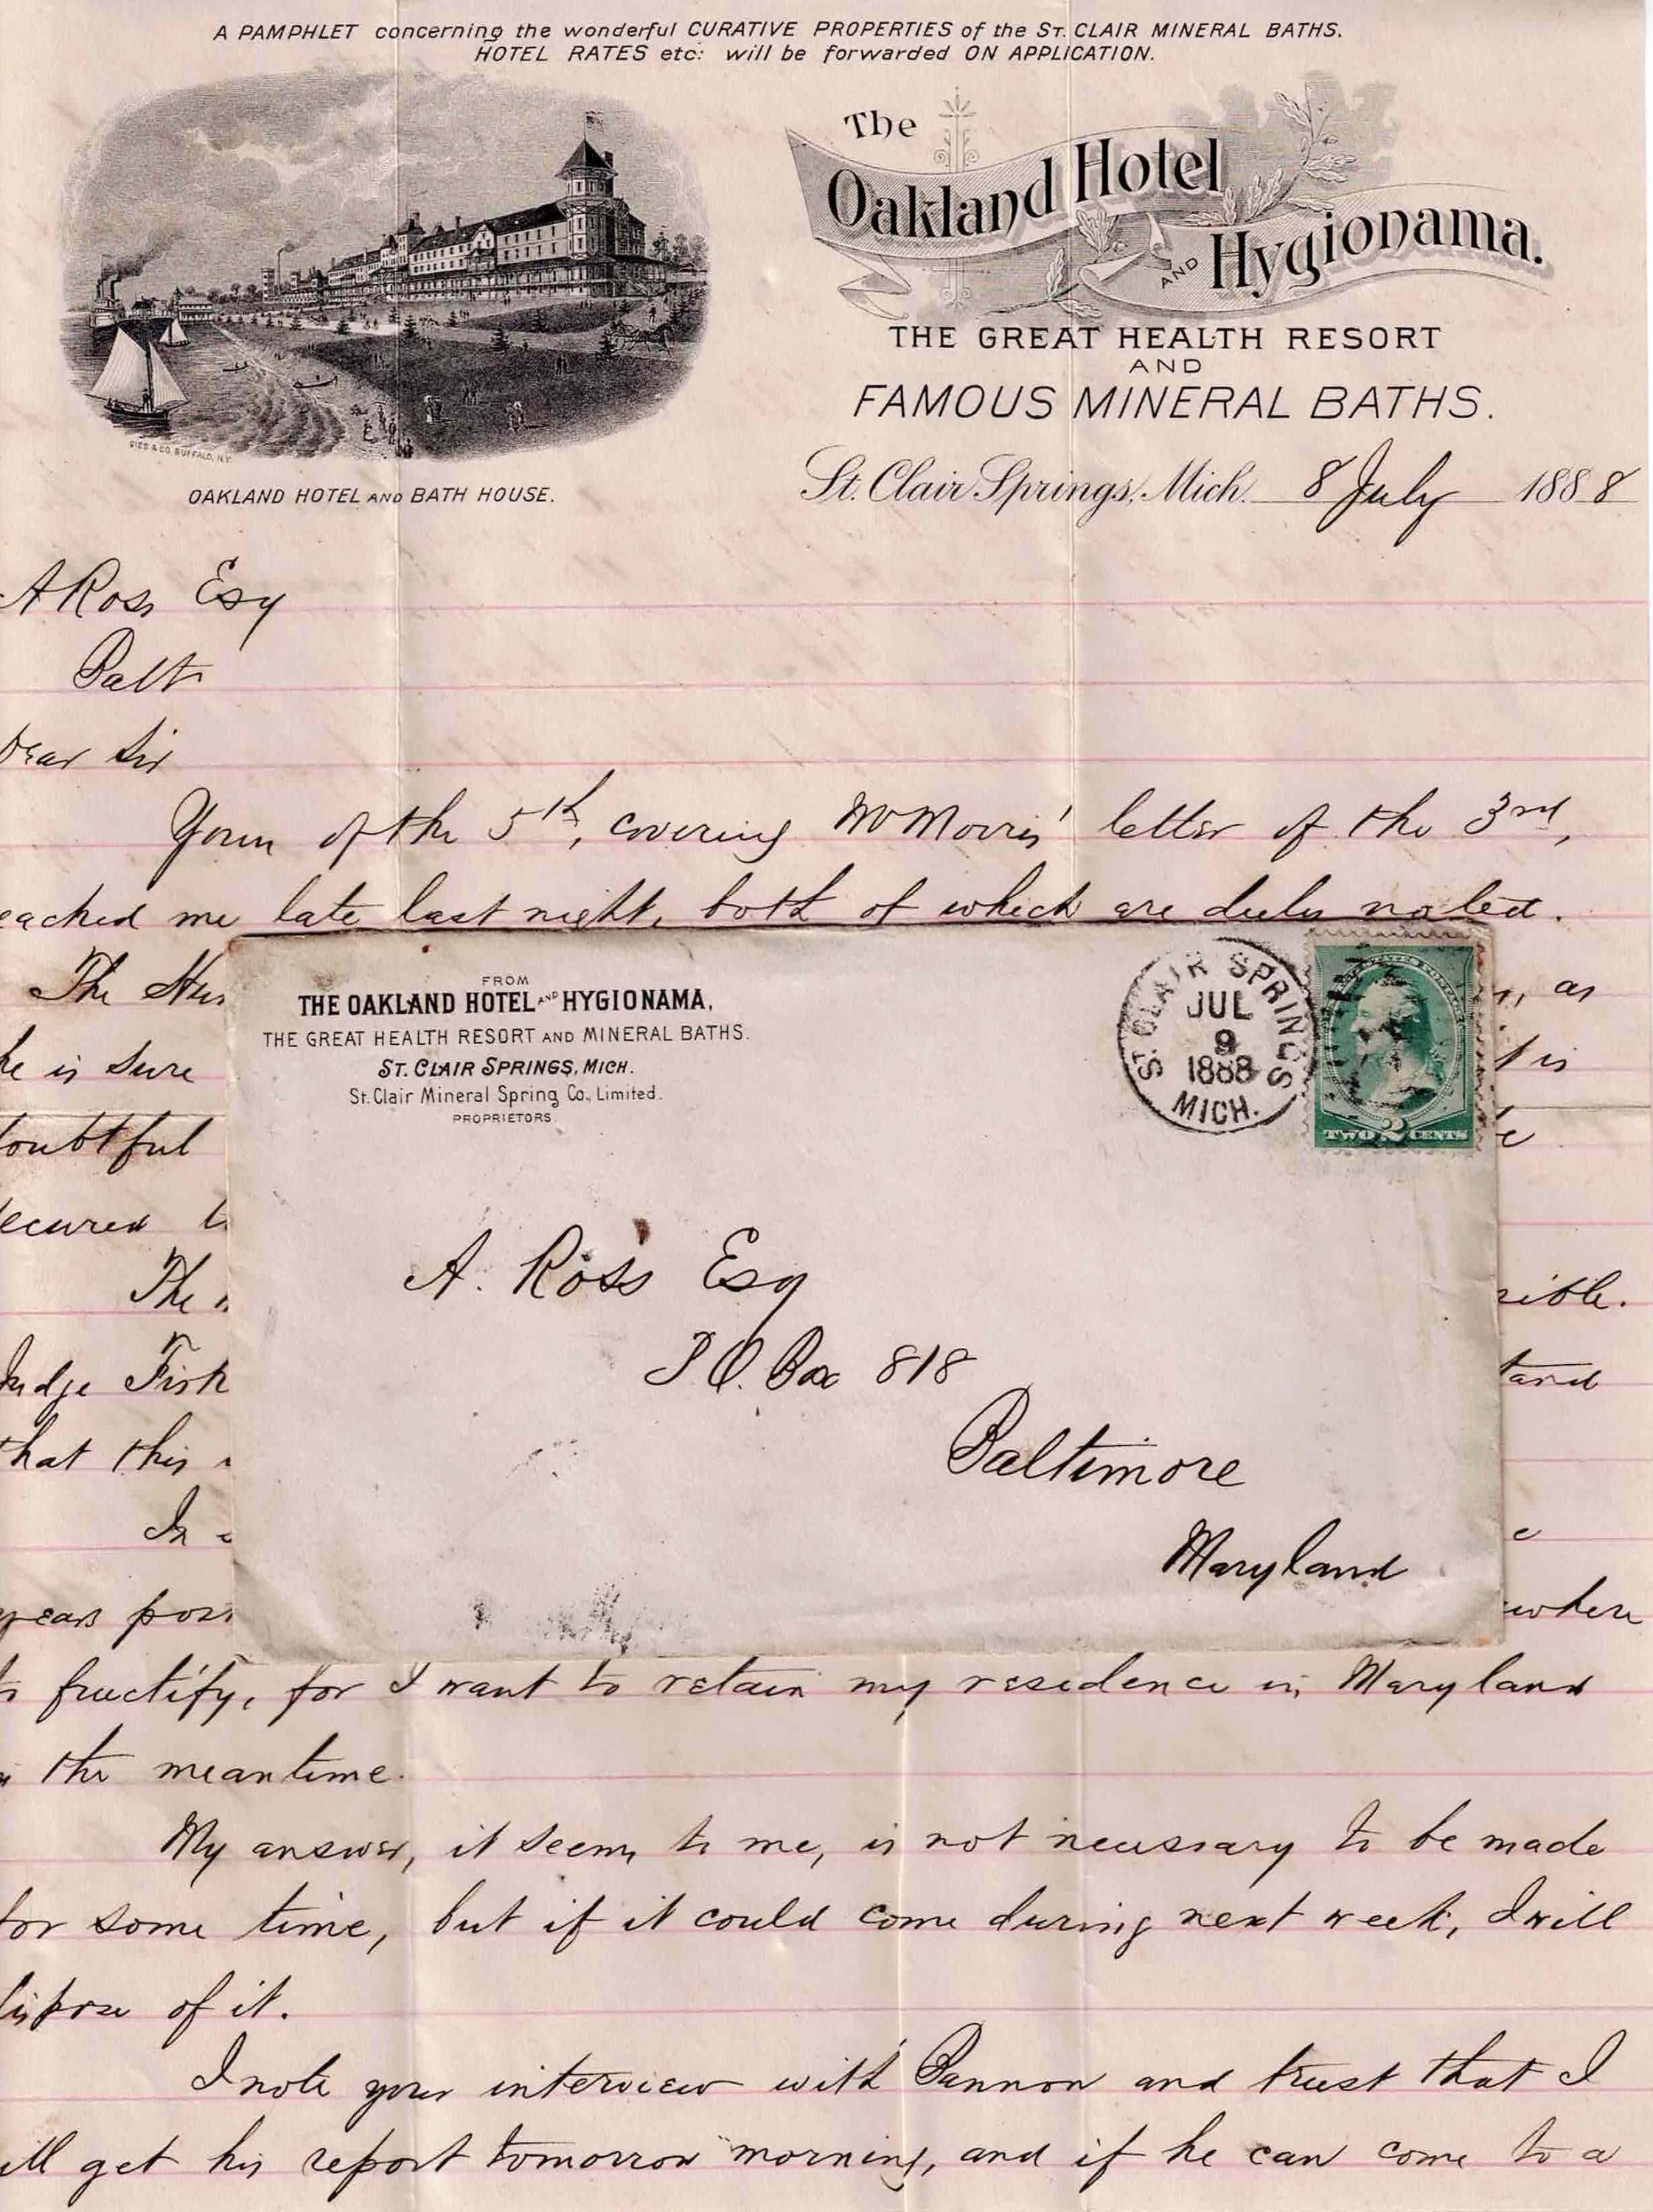 A PAMPHLET concerning the wonderful CURATIVE PROPERTIES of the ST. CLAIR MINERAL BATHS.
HOTEL RATES etc: will be forwarded ON APPLICATION.
The
Oakland Hotel
AND Hygionama.
THE GREAT HEALTH RESORT
AND
FAMOUS MINERAL BATHS.
GIES & CO. BUFFALO, N.Y.
OAKLAND HOTEL AND BATH HOUSE.
St. Clair Springs, Mich. 8 July 1888
A Ross Esq
Balt
Dear Sir
Yours of the 5th, covering Morris' letter of the 3rd,
eached me late last night, both of which are duly noted.
The , as
he is sure t is
doubtful e
ecured
The sible.
Judge Fish tand
that this
In e
years where
to fructify, for I want to retain my residence in Maryland
in the meantime.
My answer, it seems to me, is not necessary to be made
for some time, but if it could come during next week, I will
dispose of it.
I note your interview with Bannon and trust that I
ill get his report tomorrow morning, and if he can come to a
FROM
THE OAKLAND HOTEL AND HYGIONAMA,
THE GREAT HEALTH RESORT AND MINERAL BATHS.
ST. CLAIR SPRINGS, MICH.
St. Clair Mineral Spring Co., Limited.
PROPRIETORS
ST. CLAIR SPRINGS
JUL
9
1888
MICH.
TWO 2 CENTS
A. Ross Esq
P.O. Box 818
Baltimore
Maryland